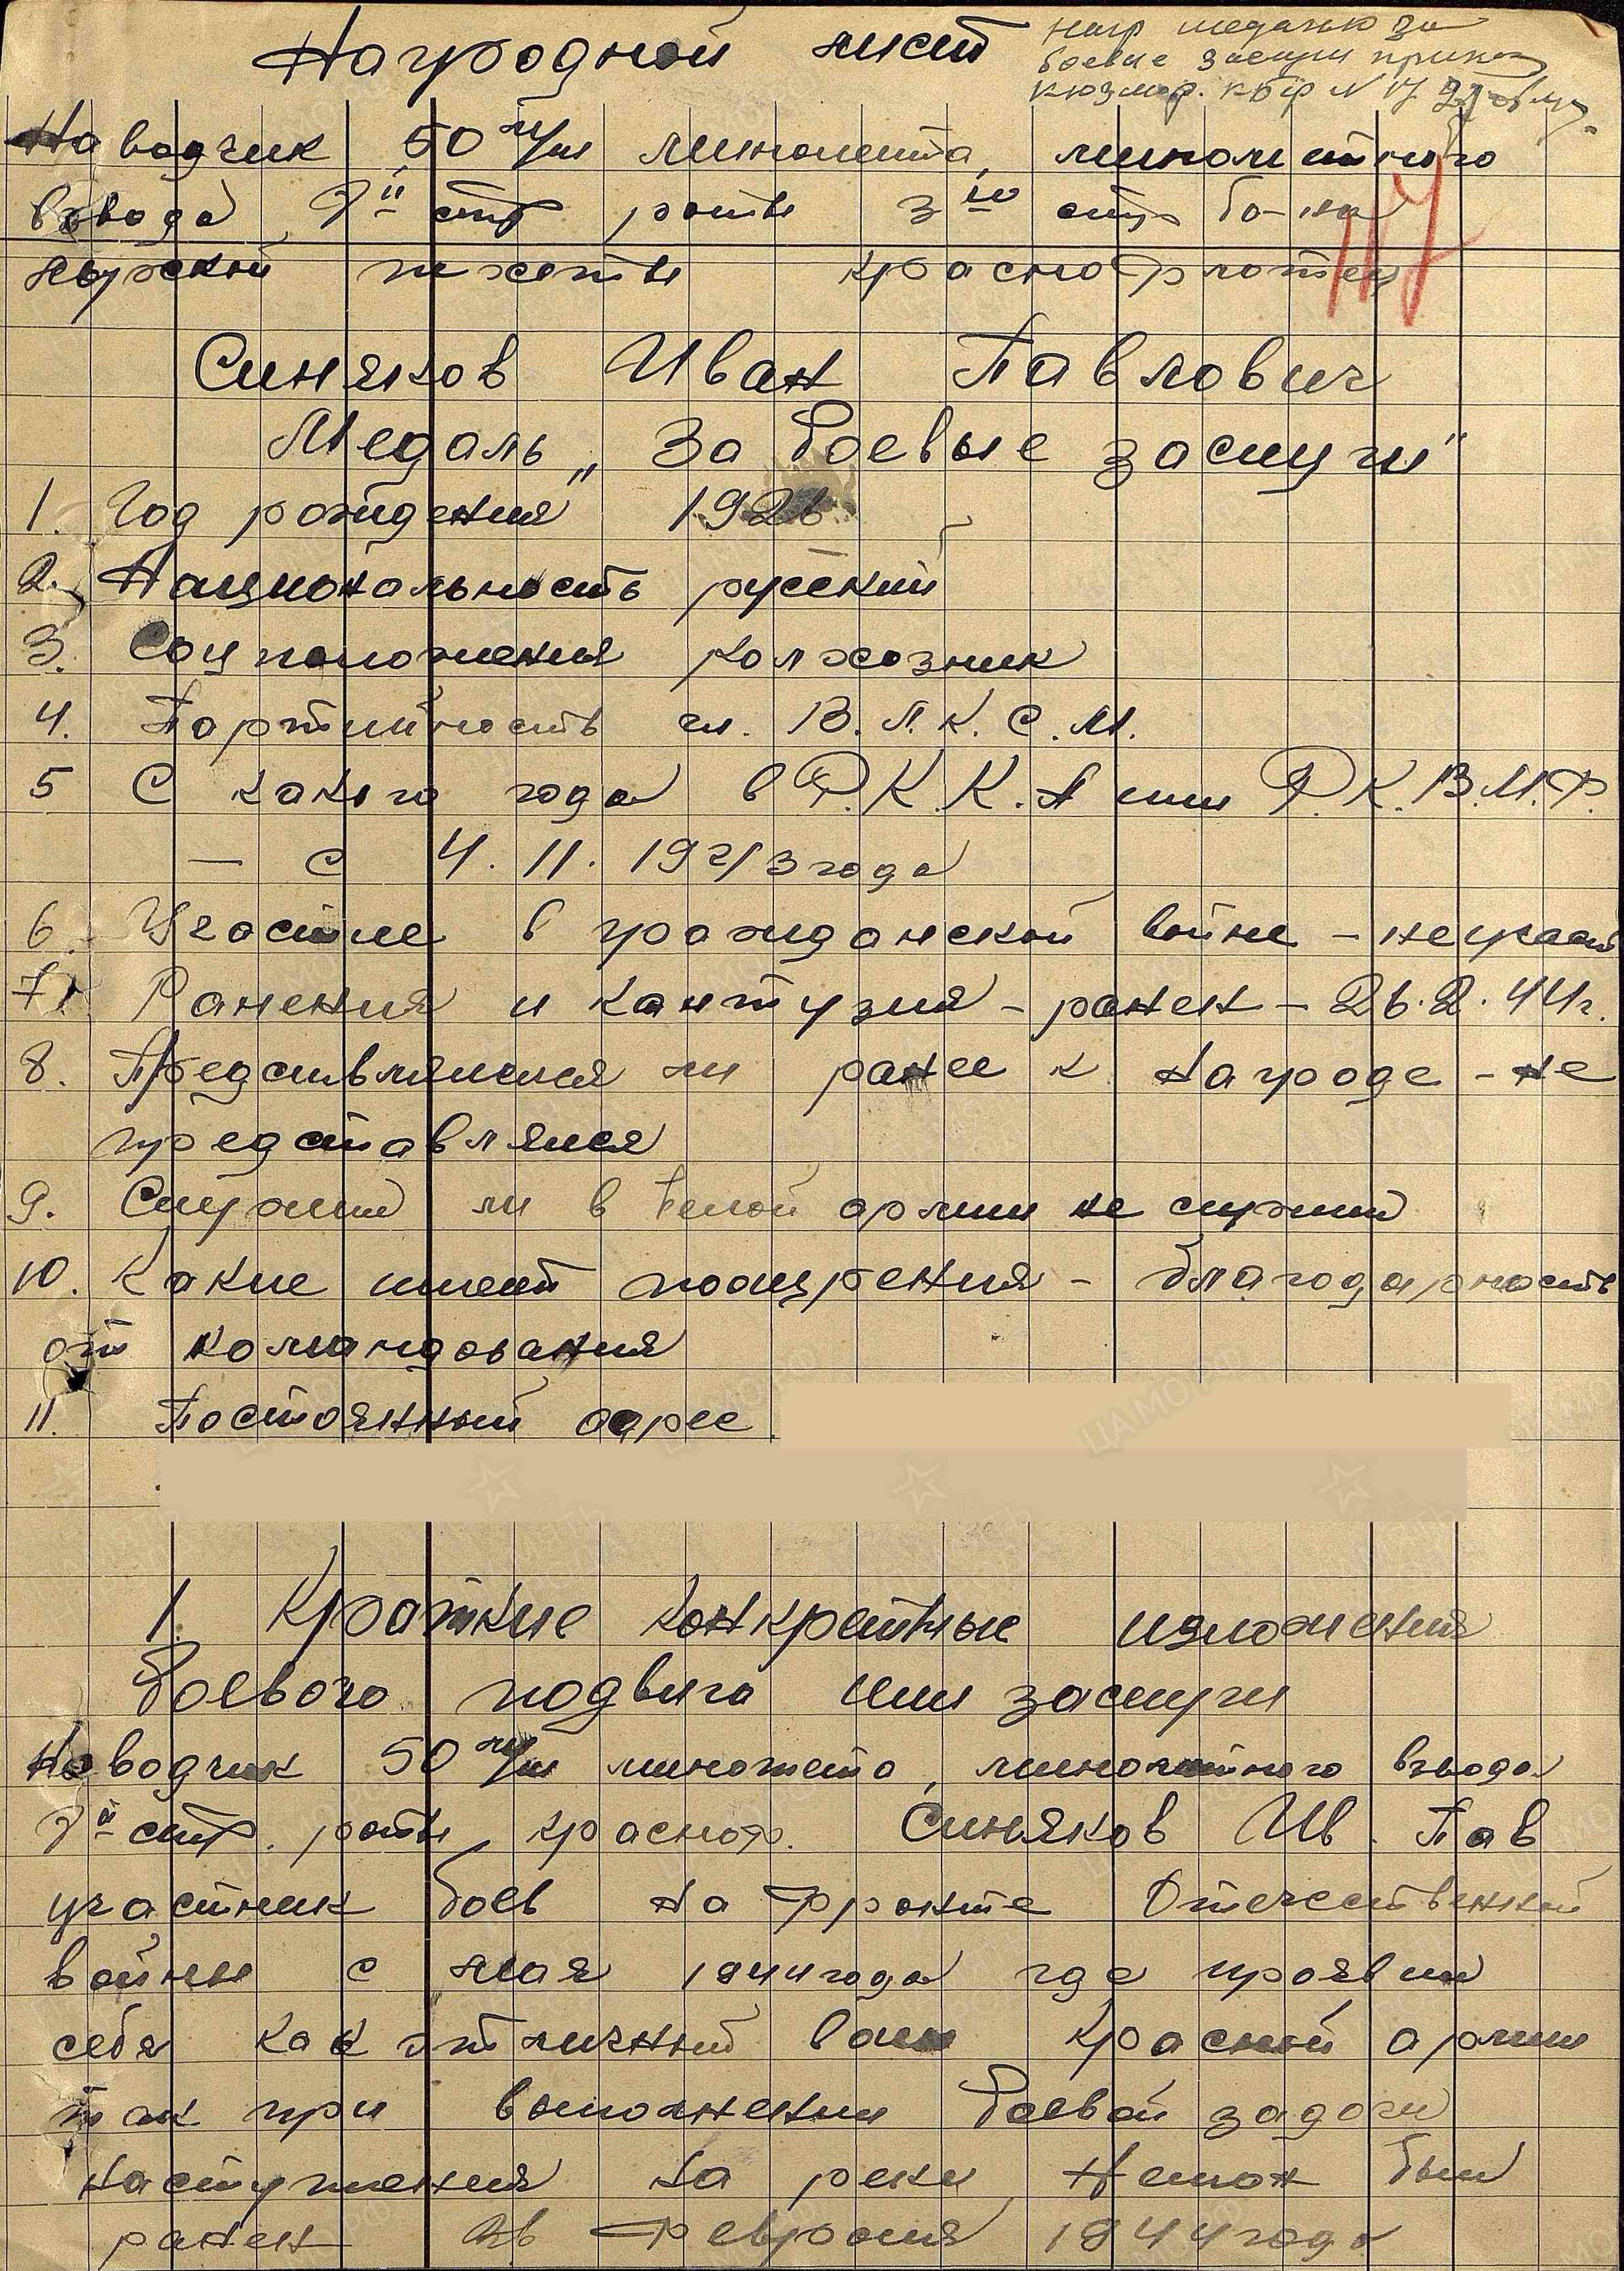 Наградной лист
нагр медалью за
боевые заслуги приказ
Наводчик 50 м/м миномета, минометного
взвода 7й стр роты 3го стр б-на
морской пехоты краснофлотец
117
Синяков Иван Павлович
Медаль „За боевые заслуги"
1. Год рождения 1926
2. Национальность русский
3. Соц положения колхозник
4. Партийность чл. В.Л.К.С.М.
5 С какого года в Р.К.К.А или Р.К.В.М.Ф.
— с 4.11.1943 года
6. Участие в гражданской войне – не участ
7. Ранения и кантузия – ранен – 26.2.44г.
8. Представлялся ли ранее к награде – не
представлялся
9. Служил ли в белой армии не служил
10. Какие имеет поощрения – благодарность
от командования
11. Постоянный адрес
1. Краткие конкретные изложения
боевого подвига или заслуги
Наводчик 50 м/м миномета, минометного взвода
7й стр. роты, краснофл. Синяков Ив. Пав
участник боев на фронте Отечественной
войны с мая 1944 года где проявил
себя как отличный воин красной армии
так при выполнении боевой задачи
наступления на реки был
ранен 26 февраля 1944 года